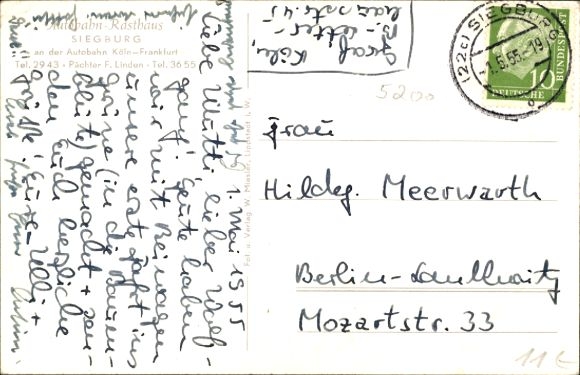 Autobahn-Rasthaus
SIEGBURG
an der Autobahn Köln-Frankfurt
Tel. 2943 · Pächter F. Linden · Tel. 3655
1. Mai 1955
Liebe Mutti, lieber Wolf-
gang! Heute haben
wir mit Beiwagen
unsere erste Fahrt ins
Grüne (in die Baum-
blüte) gemacht + sen-
den Euch herzliche
Grüße! Eure Lilli +
Graf
Köln,
(22c) SIEGBURG
-1.5.55.-19
DEUTSCHE
BUNDESPOST
10
5200
Frau
Hildeg. Meerwarth
Berlin-Lankwitz
Mozartstr. 33
11 €